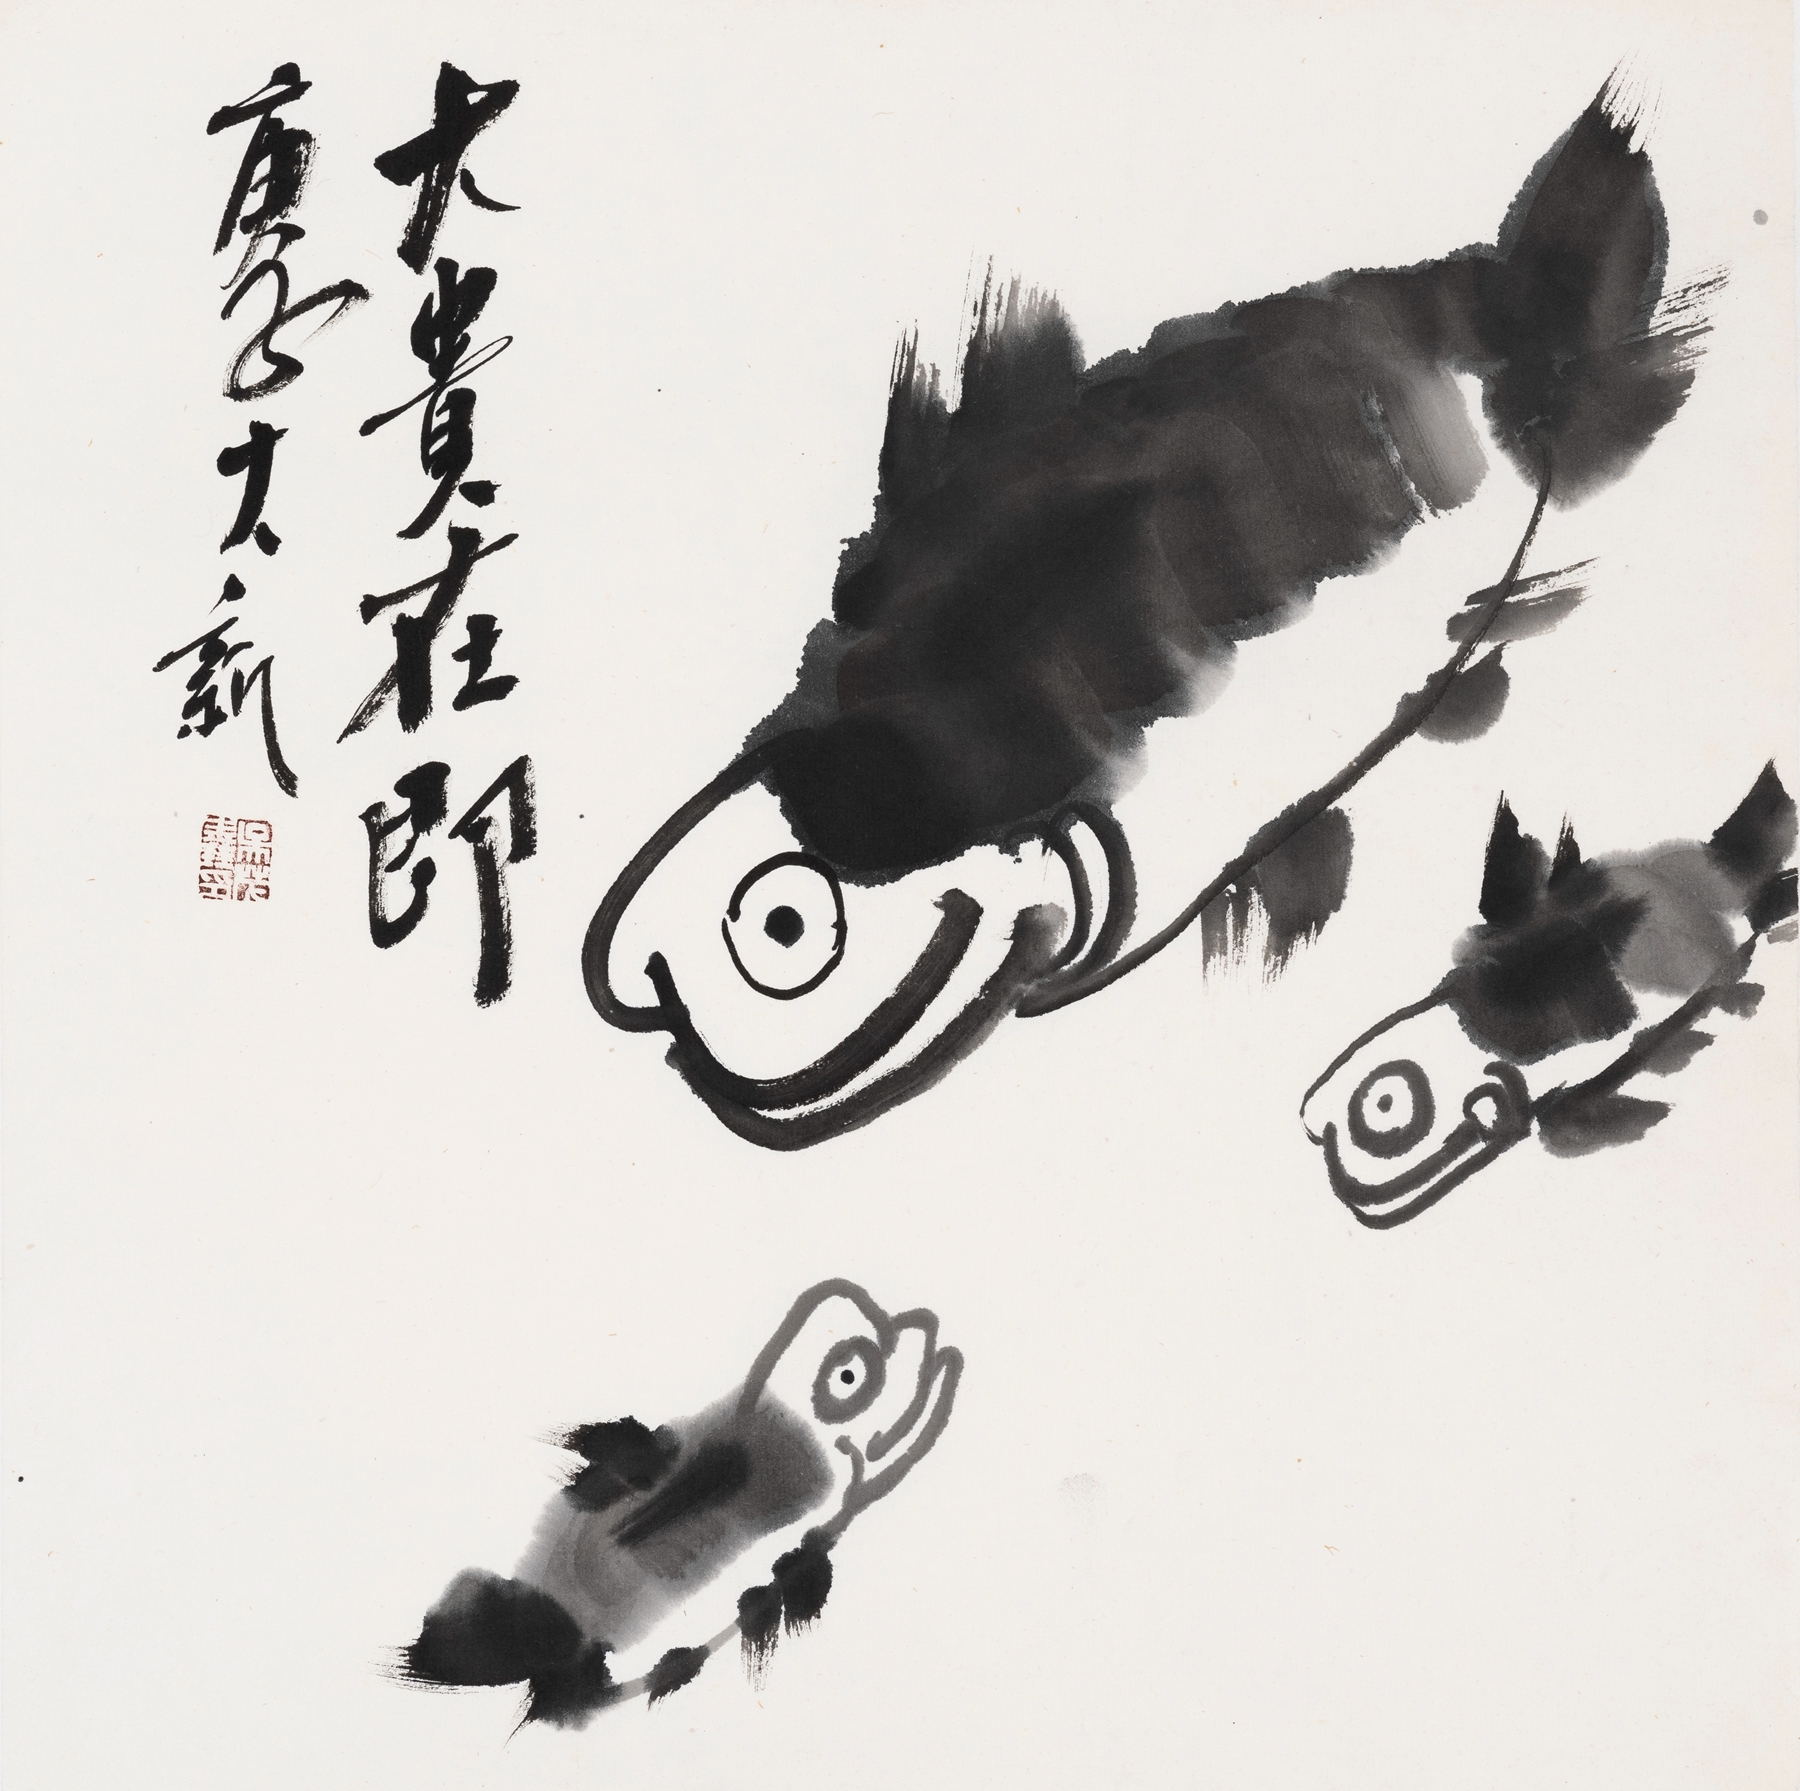 大貴在即
庚子大新